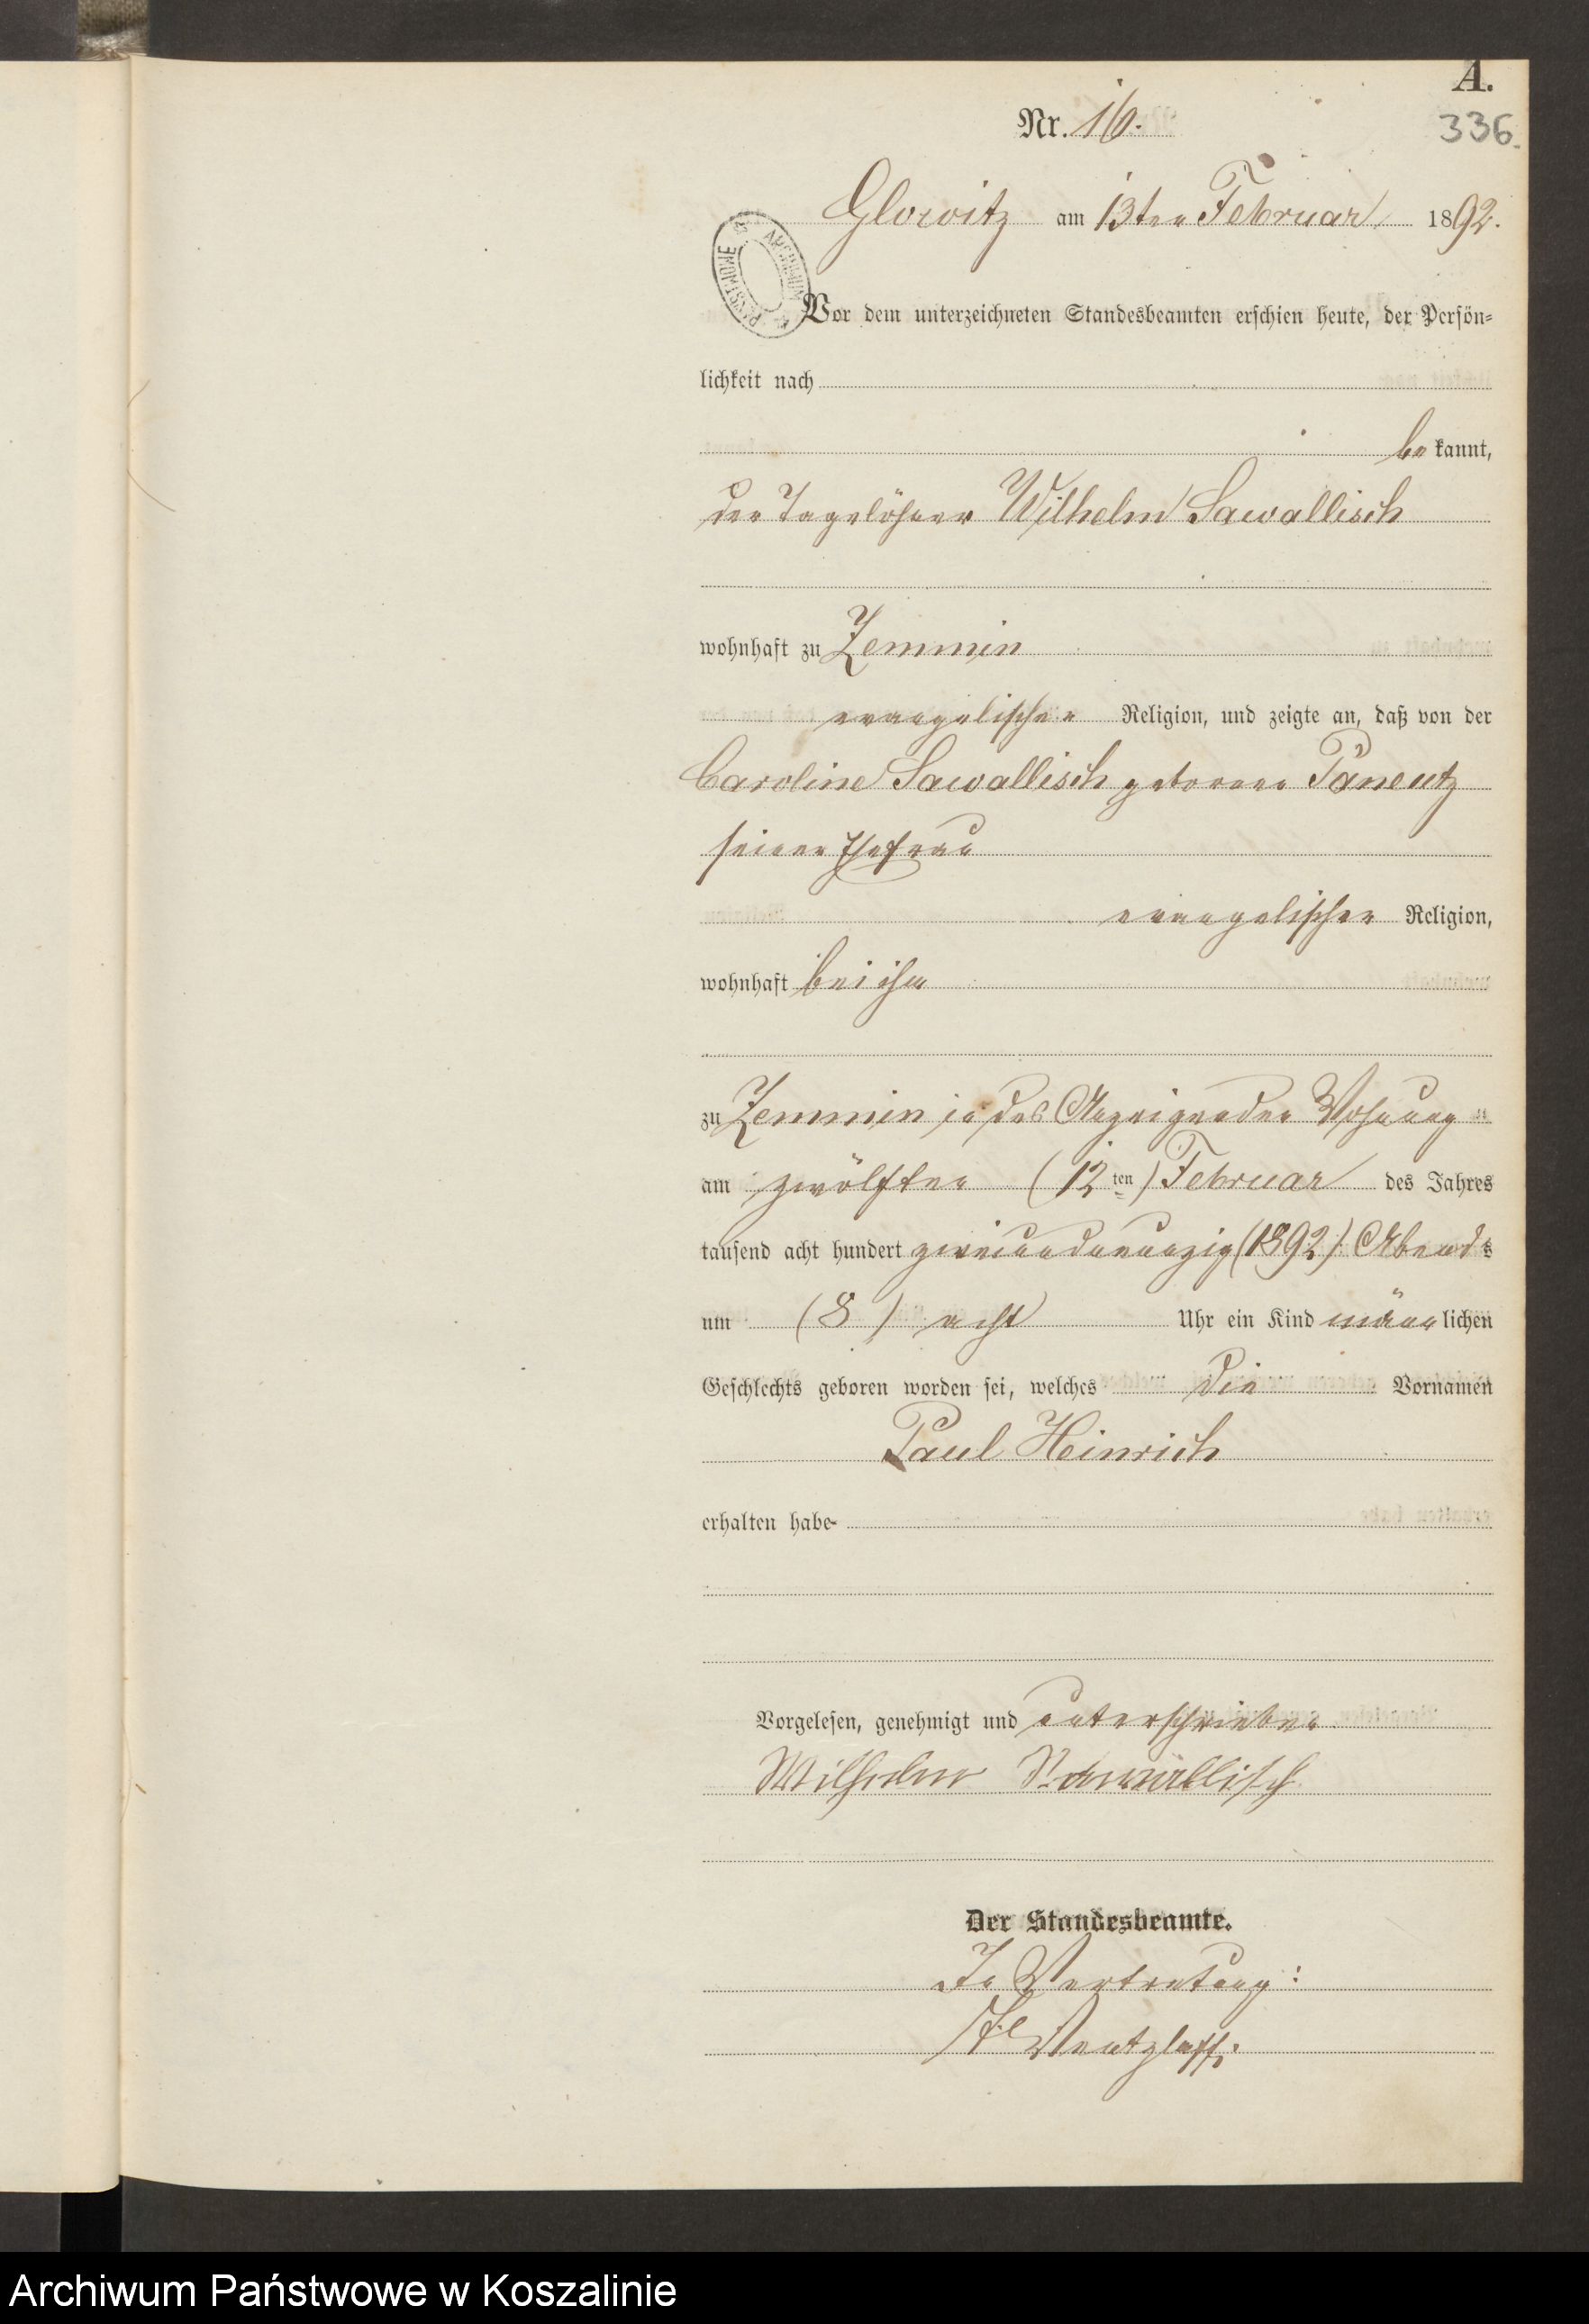 A.
Nr. 16.
336.
Glowitz am 13ten Februar 1892.
ARCHIWUM PAŃSTWOWE
Vor dem unterzeichneten Standesbeamten erschien heute, der Persön=
lichkeit nach
be kannt,
der Tagelöhner Wilhelm Sawallisch
wohnhaft zu Zemmin
evangelischer Religion, und zeigte an, daß von der
Caroline Sawallisch geborene
seiner Ehefrau
evangelischer Religion,
wohnhaft bei ihm
zu Zemmin in des Anzeigenden Wohnung
am zwölften (12ten) Februar des Jahres
tausend acht hundert zweiundneunzig (1892) Abends
um (8) acht Uhr ein Kind männlichen
Geschlechts geboren worden sei, welches die Vornamen
Paul Heinrich
erhalten habe
Vorgelesen, genehmigt und unterschrieben
Wilhelm Sawallisch
Der Standesbeamte.
In Vertretung:
Wentzlaff.
Archiwum Państwowe w Koszalinie